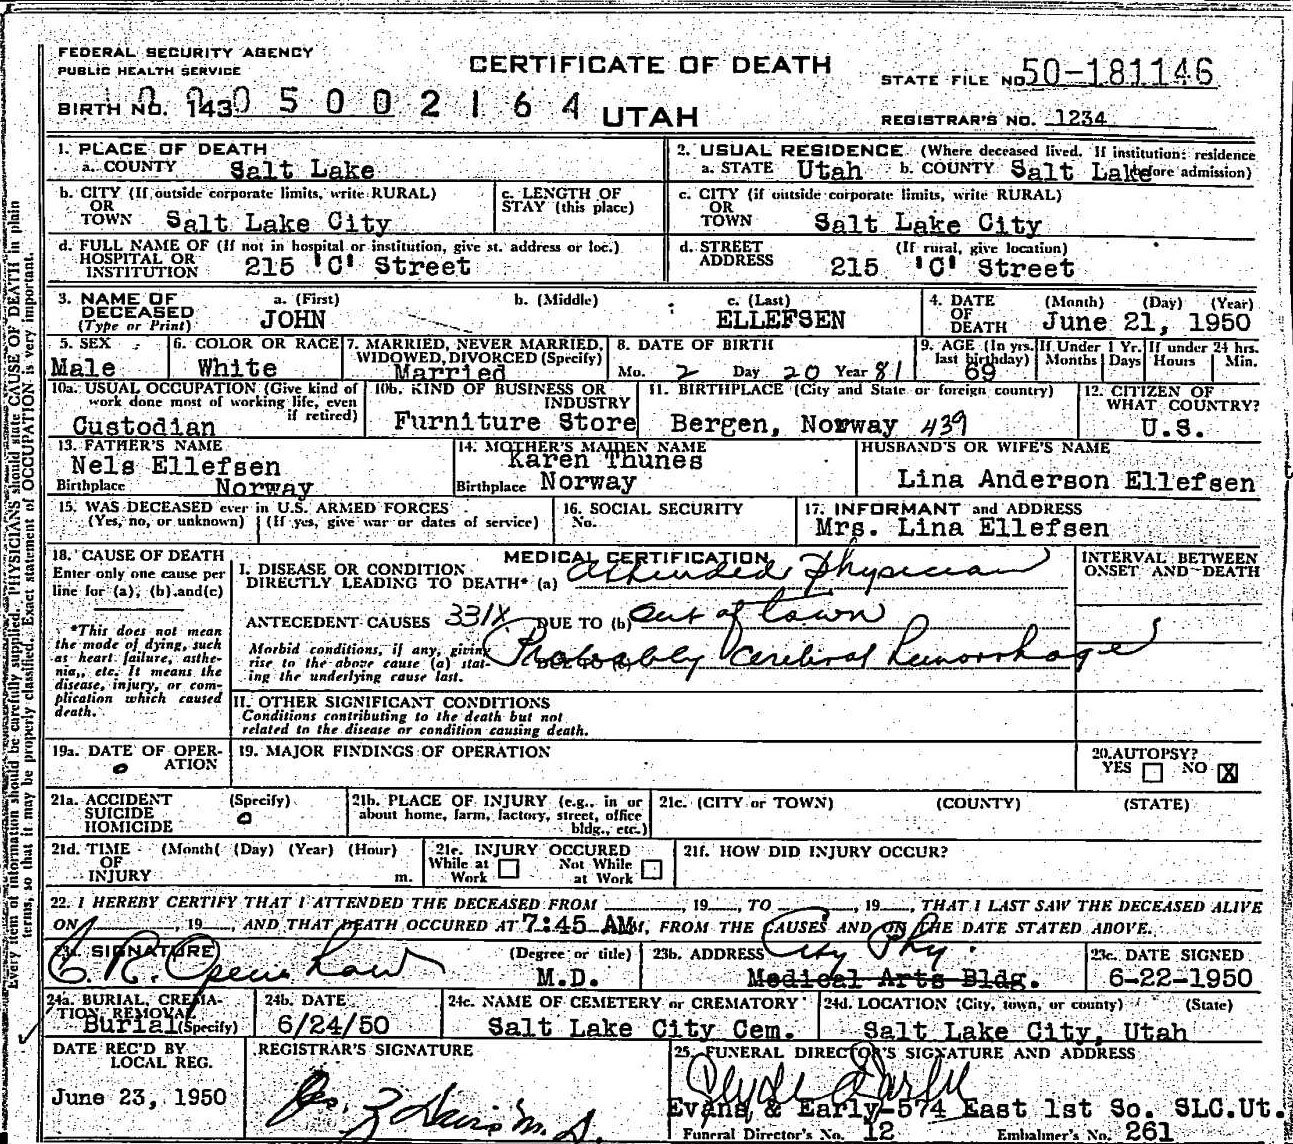 FEDERAL SECURITY AGENCY
PUBLIC HEALTH SERVICE
CERTIFICATE OF DEATH
STATE FILE NO. 50-181146
BIRTH NO. 143 0 5 0 0 2 1 6 4
UTAH
REGISTRAR'S NO. 1234
Every item of information should be carefully supplied. PHYSICIANS should state CAUSE OF DEATH in plain
terms, so that it may be properly classified. Exact statement of OCCUPATION is very important.
1. PLACE OF DEATH
a. COUNTY Salt Lake
2. USUAL RESIDENCE (Where deceased lived. If institution: residence before admission)
a. STATE Utah b. COUNTY Salt Lake
b. CITY (If outside corporate limits, write RURAL)
OR
TOWN Salt Lake City
c. LENGTH OF
STAY (this place)
c. CITY (if outside corporate limits, write RURAL)
OR
TOWN Salt Lake City
d. FULL NAME OF (If not in hospital or institution, give st. address or loc.)
HOSPITAL OR
INSTITUTION 215 'C' Street
d. STREET (If rural, give location)
ADDRESS 215 'C' Street
3. NAME OF
DECEASED
(Type or Print)
a. (First) b. (Middle) c. (Last)
JOHN ELLEFSEN
4. DATE
OF
DEATH
(Month) (Day) (Year)
June 21, 1950
5. SEX
Male
6. COLOR OR RACE
White
7. MARRIED, NEVER MARRIED,
WIDOWED, DIVORCED (Specify)
Married
8. DATE OF BIRTH
Mo. 2 Day 20 Year 81
9. AGE (In yrs.
last birthday)
69
If Under 1 Yr.
Months Days
If under 24 hrs.
Hours Min.
10a. USUAL OCCUPATION (Give kind of
work done most of working life, even
if retired)
Custodian
10b. KIND OF BUSINESS OR
INDUSTRY
Furniture Store
11. BIRTHPLACE (City and State or foreign country)
Bergen, Norway 439
12. CITIZEN OF
WHAT COUNTRY?
U.S.
13. FATHER'S NAME
Nels Ellefsen
Birthplace Norway
14. MOTHER'S MAIDEN NAME
Karen Thunes
Birthplace Norway
HUSBAND'S OR WIFE'S NAME
Lina Anderson Ellefsen
15. WAS DECEASED ever in U.S. ARMED FORCES
(Yes, no, or unknown) (If yes, give war or dates of service)
16. SOCIAL SECURITY
No.
17. INFORMANT and ADDRESS
Mrs. Lina Ellefsen
18. CAUSE OF DEATH
Enter only one cause per
line for (a), (b) and(c)
*This does not mean
the mode of dying, such
as heart failure, asthe-
nia,, etc. It means the
disease, injury, or com-
plication which caused
death.
MEDICAL CERTIFICATION
I. DISEASE OR CONDITION
DIRECTLY LEADING TO DEATH* (a) Attended Physician
ANTECEDENT CAUSES 331X DUE TO (b) out of town
Morbid conditions, if any, giving
rise to the above cause (a) stat-
ing the underlying cause last.
Probably Cerebral hemorrhage
INTERVAL BETWEEN
ONSET AND DEATH
II. OTHER SIGNIFICANT CONDITIONS
Conditions contributing to the death but not
related to the disease or condition causing death.
19a. DATE OF OPER-
ATION
o
19. MAJOR FINDINGS OF OPERATION
20. AUTOPSY?
YES NO X
21a. ACCIDENT (Specify)
SUICIDE o
HOMICIDE
21b. PLACE OF INJURY (e.g., in or
about home, farm, factory, street, office
bldg., etc.)
21c. (CITY or TOWN) (COUNTY) (STATE)
21d. TIME (Month( (Day) (Year) (Hour)
OF
INJURY m.
21e. INJURY OCCURED
While at Work Not While at Work
21f. HOW DID INJURY OCCUR?
22. I HEREBY CERTIFY THAT I ATTENDED THE DECEASED FROM , 19 , TO , 19 , THAT I LAST SAW THE DECEASED ALIVE
ON , 19 , AND THAT DEATH OCCURED AT 7:45 AM M, FROM THE CAUSES AND ON THE DATE STATED ABOVE.
23a. SIGNATURE (Degree or title)
M.D.
23b. ADDRESS City Phy.
Medical Arts Bldg.
23c. DATE SIGNED
6-22-1950
24a. BURIAL, CREMA-
TION, REMOVAL
Burial (Specify)
24b. DATE
6/24/50
24c. NAME OF CEMETERY or CREMATORY
Salt Lake City Cem.
24d. LOCATION (City, town, or county) (State)
Salt Lake City, Utah
DATE REC'D BY
LOCAL REG.
June 23, 1950
REGISTRAR'S SIGNATURE
M.D.
25. FUNERAL DIRECTOR'S SIGNATURE AND ADDRESS
Evans & Early-574 East 1st So. SLC.Ut.
Funeral Director's No. 12 Embalmer's No. 261